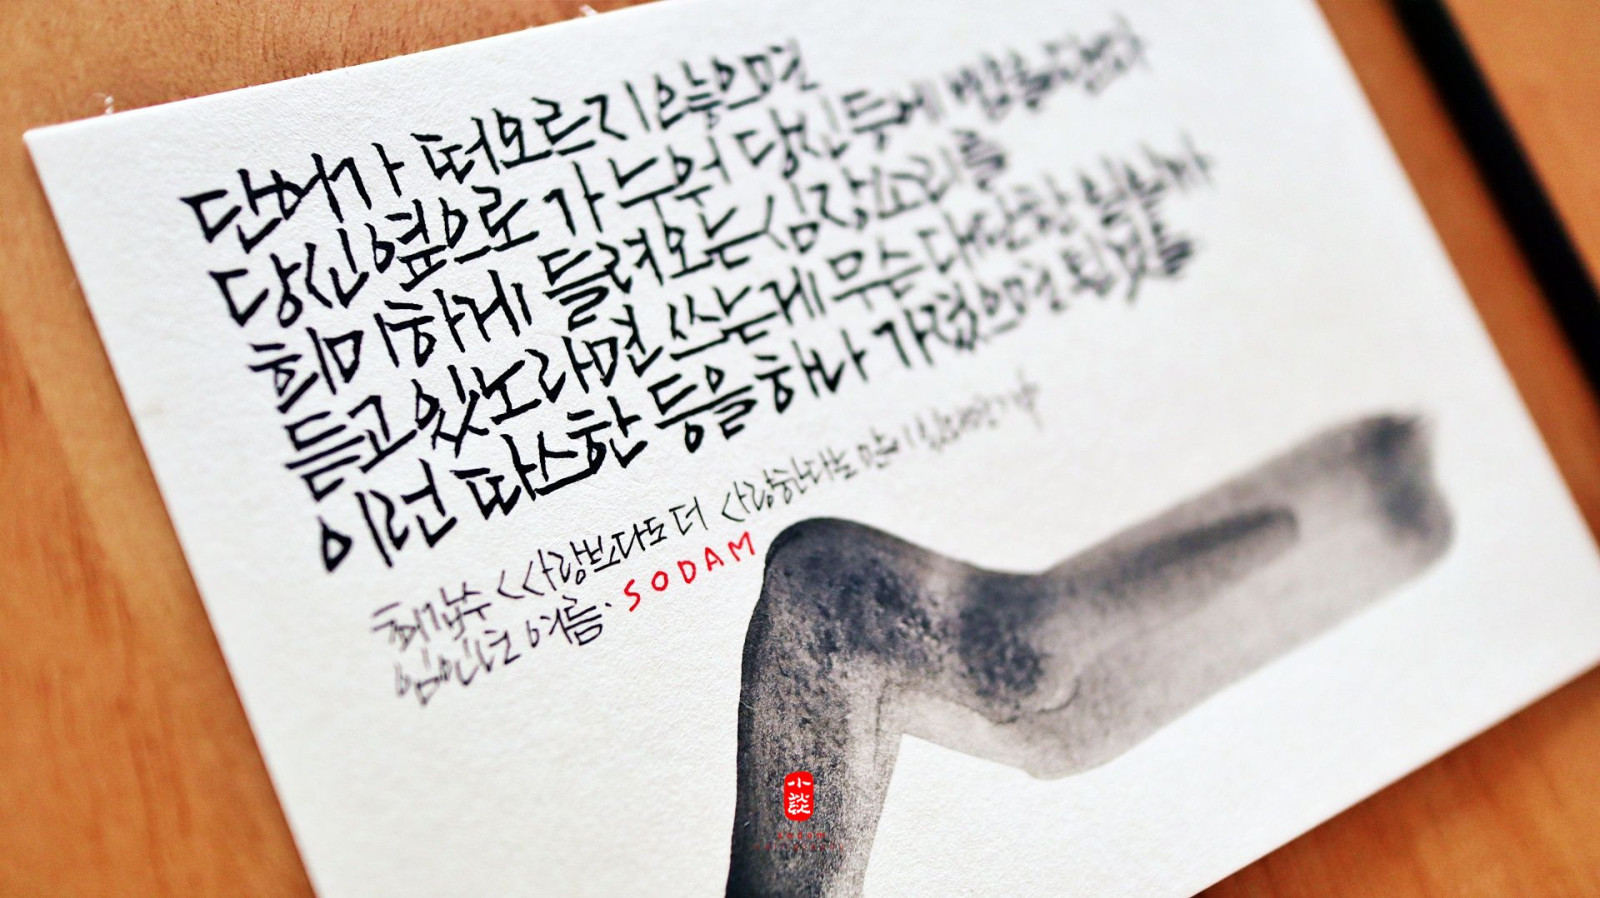 단어가 떠오르지 않으면
당신 옆으로 가 누워 당신 등에
희미하게 들려오는 심장소리를
듣고 있노라면 쓰는 게 무슨 대단한 일일까
이런 따스한 등을 하나 가졌으면 된 것을
최갑수 <<사랑보다도 더 사랑한다는 말이 있다면
임인년 여름. SODAM
小談
sodam